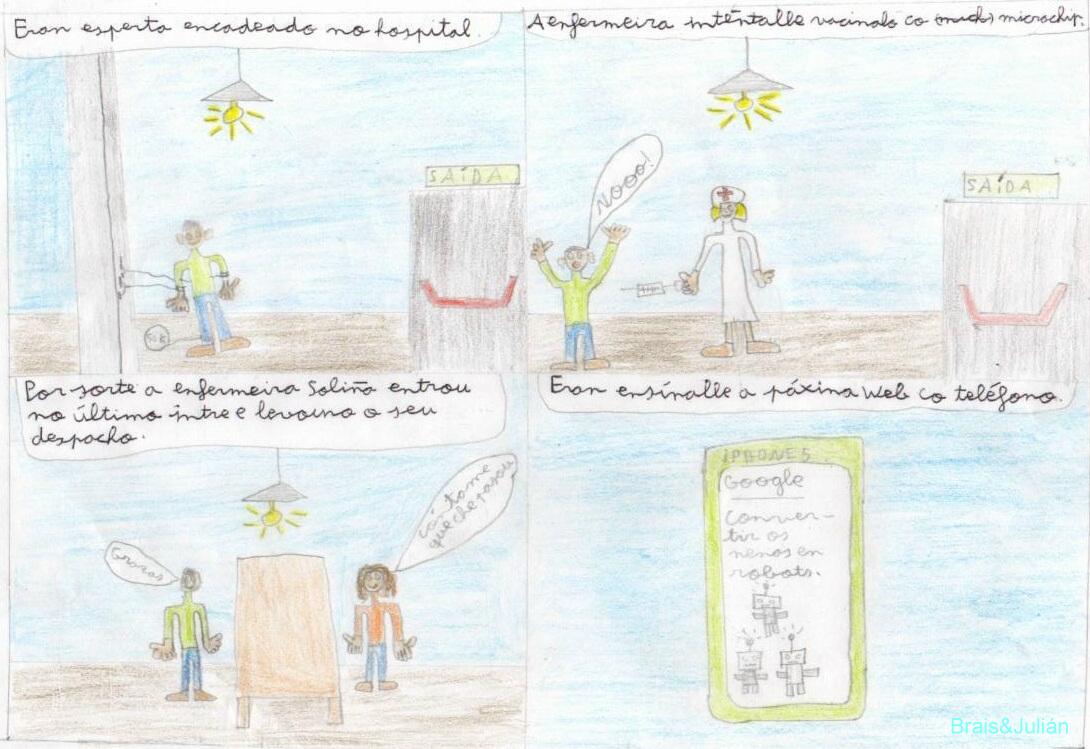 Eran esperta encadeado no hospital.
SAÍDA
50K
A enfermeira inténtalle vacinalo co microchip.
NOOO!
SAÍDA
Por sorte a enfermeira Soliña entrou
no último intre e levouno o seu
despacho.
Grazas
Cóntame
que che pasou
Eran ensínalle a páxina Web co teléfono.
IPHONE 5
Google
Conver-
tir os
nenos en
robots.
Brais&Julián